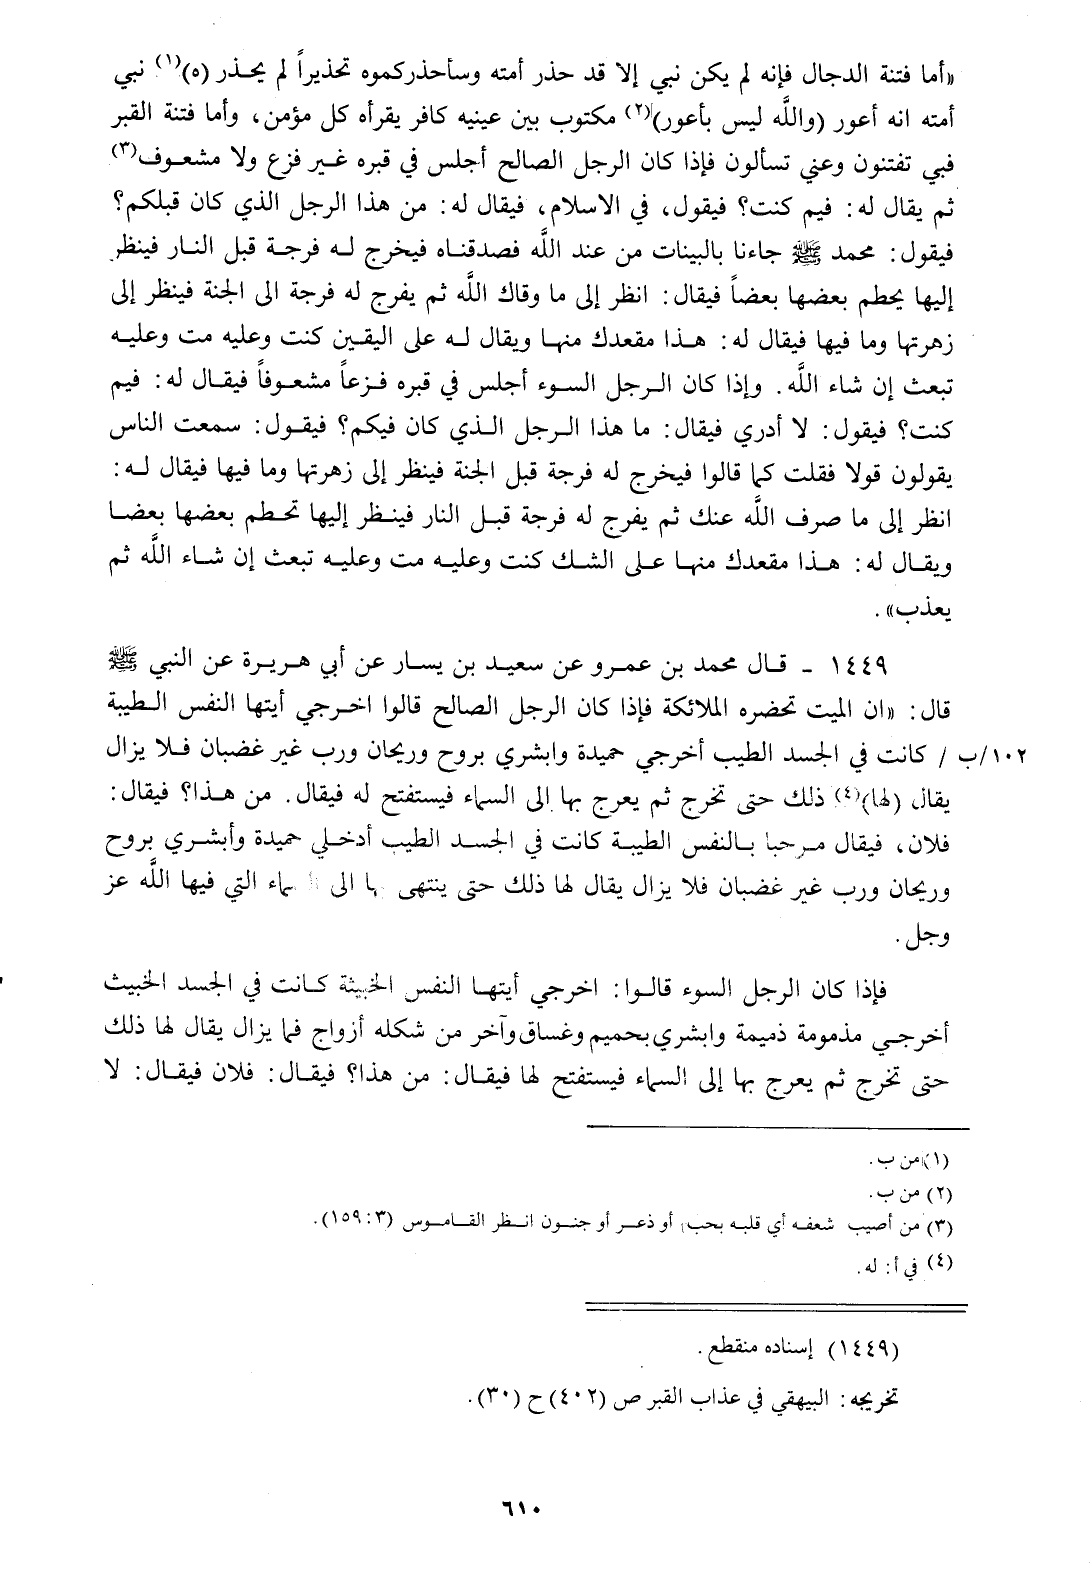 «أما فتنة الدجال فإنه لم يكن نبي إلا قد حذر أمته وسأحذركموه تحذيراً لم يحذر (ه)(١) نبي
أمته انه أعور (والله ليس بأعور)(٢) مكتوب بين عينيه كافر يقرأه كل مؤمن، وأما فتنة القبر
فبي تفتنون وعني تسألون فإذا كان الرجل الصالح أجلس في قبره غير فزع ولا مشعوف(٣)
ثم يقال له: فيم كنت؟ فيقول، في الاسلام، فيقال له: من هذا الرجل الذي كان قبلكم؟
فيقول: محمد ﷺ جاءنا بالبينات من عند الله فصدقناه فيخرج له فرجة قبل النار فينظر
إليها يحطم بعضها بعضاً فيقال: انظر إلى ما وقاك الله ثم يفرج له فرجة الى الجنة فينظر إلى
زهرتها وما فيها فيقال له: هذا مقعدك منها ويقال له على اليقين كنت وعليه مت وعليه
تبعث إن شاء الله. وإذا كان الرجل السوء أجلس في قبره فزعاً مشعوفاً فيقال له: فيم
كنت؟ فيقول: لا أدري فيقال: ما هذا الرجل الذي كان فيكم؟ فيقول: سمعت الناس
يقولون قولا فقلت كما قالوا فيخرج له فرجة قبل الجنة فينظر إلى زهرتها وما فيها فيقال له:
انظر إلى ما صرف الله عنك ثم يفرج له فرجة قبل النار فينظر إليها تحطم بعضها بعضا
ويقال له: هذا مقعدك منها على الشك كنت وعليه مت وعليه تبعث إن شاء الله ثم
يعذب».
١٤٤٩ - قال محمد بن عمرو عن سعيد بن يسار عن أبي هريرة عن النبي ﷺ
قال: «ان الميت تحضره الملائكة فإذا كان الرجل الصالح قالوا اخرجي أيتها النفس الطيبة
١٠٢/ب / كانت في الجسد الطيب أخرجي حميدة وابشري بروح وريحان ورب غير غضبان فلا يزال
يقال (لها)(٤) ذلك حتى تخرج ثم يعرج بها الى السماء فيستفتح له فيقال. من هذا؟ فيقال:
فلان، فيقال مرحبا بالنفس الطيبة كانت في الجسد الطيب أدخلي حميدة وأبشري بروح
وريحان ورب غير غضبان فلا يزال يقال لها ذلك حتى ينتهى بها الى السماء التي فيها الله عز
وجل.
فإذا كان الرجل السوء قالوا: اخرجي أيتها النفس الخبيثة كانت في الجسد الخبيث
أخرجي مذمومة ذميمة وابشري بحميم وغساق وآخر من شكله أزواج فما يزال يقال لها ذلك
حتى تخرج ثم يعرج بها إلى السماء فيستفتح لها فيقال: من هذا؟ فيقال: فلان فيقال: لا
(١) من ب.
(٢) من ب.
(٣) من أصيب شعفه أي قلبه بحب أو ذعر أو جنون انظر القاموس (٣: ١٥٩).
(٤) في أ: له.
(١٤٤٩) إسناده منقطع.
تخريجه: البيهقي في عذاب القبر ص (٤٠٢) ح (٣٠).
٦١٠